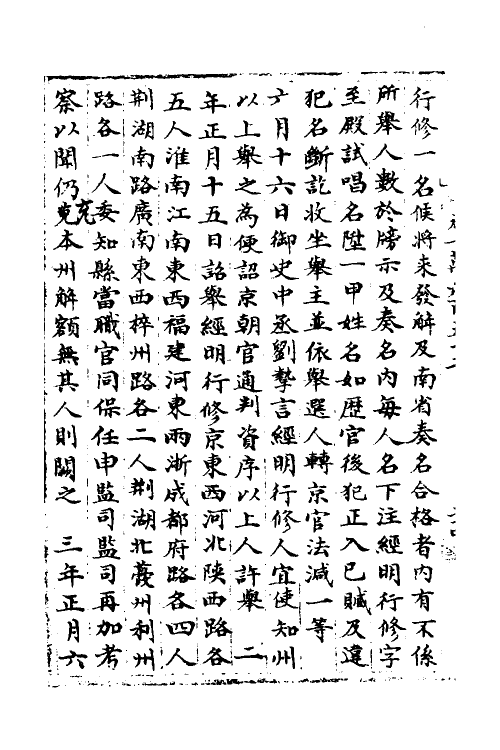 行修一名候將來發解及南省奏名合格者内有不係
所舉人數於牓示及奏名内每人名下注經明行修字
至殿試唱名陞一甲姓名如歷官後犯正入已贓及違
犯名斷訖收坐舉主並依舉選人轉京官法減一等
六月十六日御史中丞劉摯言經明行修人宜使知州
以上舉之為便詔京朝官通判資序以上人許舉　二
年正月十五日詔舉經明行修京東西河北陝西路各
五人淮南江南東西福建河東兩浙成都府路各四人
荆湖南路廣南東西梓州路各二人荆湖北夔州利州
路各一人委知縣當職官同保任申監司監司再加考
察以聞仍充本州解額無其人則闕之　三年正月六